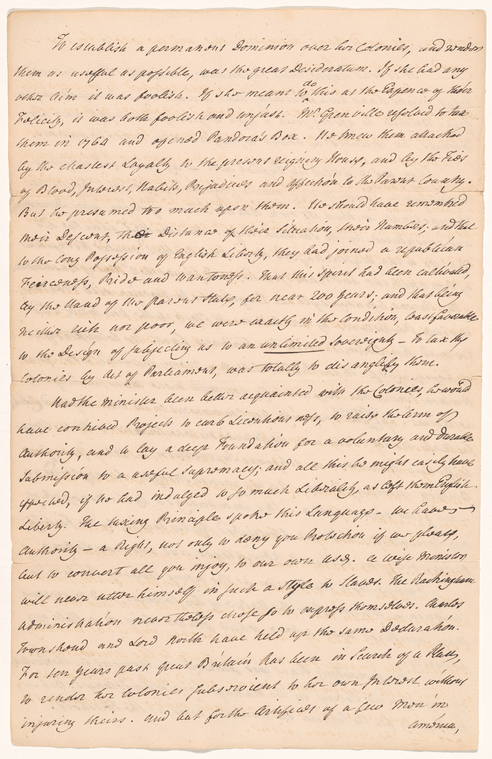 To establish a permanent Dominion over her Colonies, and render
them as useful as possible, was the great Desideratum. If she had any
other Aim it was foolish. If she meant to do this at the Expence of their
Felicity, it was both foolish and unjust. Mr. Grenville resolved to tax
them in 1764 and opened Pandora's Box. He knew them attached
by the chastest Loyalty to the present reigning House, and by the Ties
of Blood, Interest, Habits, Prejudices and affection to the Parent Country.
But he presumed too much upon them. He should have remembered
their Descent, the Distance of their Situation, their Numbers; and that
to the long Possession of English Liberty, they had joined a republican
Feirceness, Pride and Wantoness. That this Spirit had been cultivated,
by the Hand of the parent State, for near 200 years; and that being
neither rich nor poor, we were exactly in the Condition, least favorable
to the Design of subjecting us to an unlimited Sovereignty – To tax the
Colonies by Act of Parliament, was totally to disanglify them.
Had the Minister been better acquainted with the Colonies, he would
have contrived Projects to curb Licentiousness, to raise the Arm of
Authority, and to lay a deep Foundation for a voluntary and durable
Submission to a useful Supremacy; and all this he might easily have
effected, if he had indulged to so much Liberality, as left them English
Liberty. The taxing Principle spoke this Language – We have
Authority – a Right, not only to deny you Protection if we please,
but to convert all you enjoy, to our own Use. A wise Minister
will never utter himself in such a Style to Slaves. The Rockingham
administration nevertheless chose so to express themselves. Charles
Townshend and Lord North have held up the same Declaration.
For ten years past great Britain has been in Search of a Plan,
to render her Colonies subservient to her own Interest without
injuring theirs. And but for the Artifices of a few Men in
America,